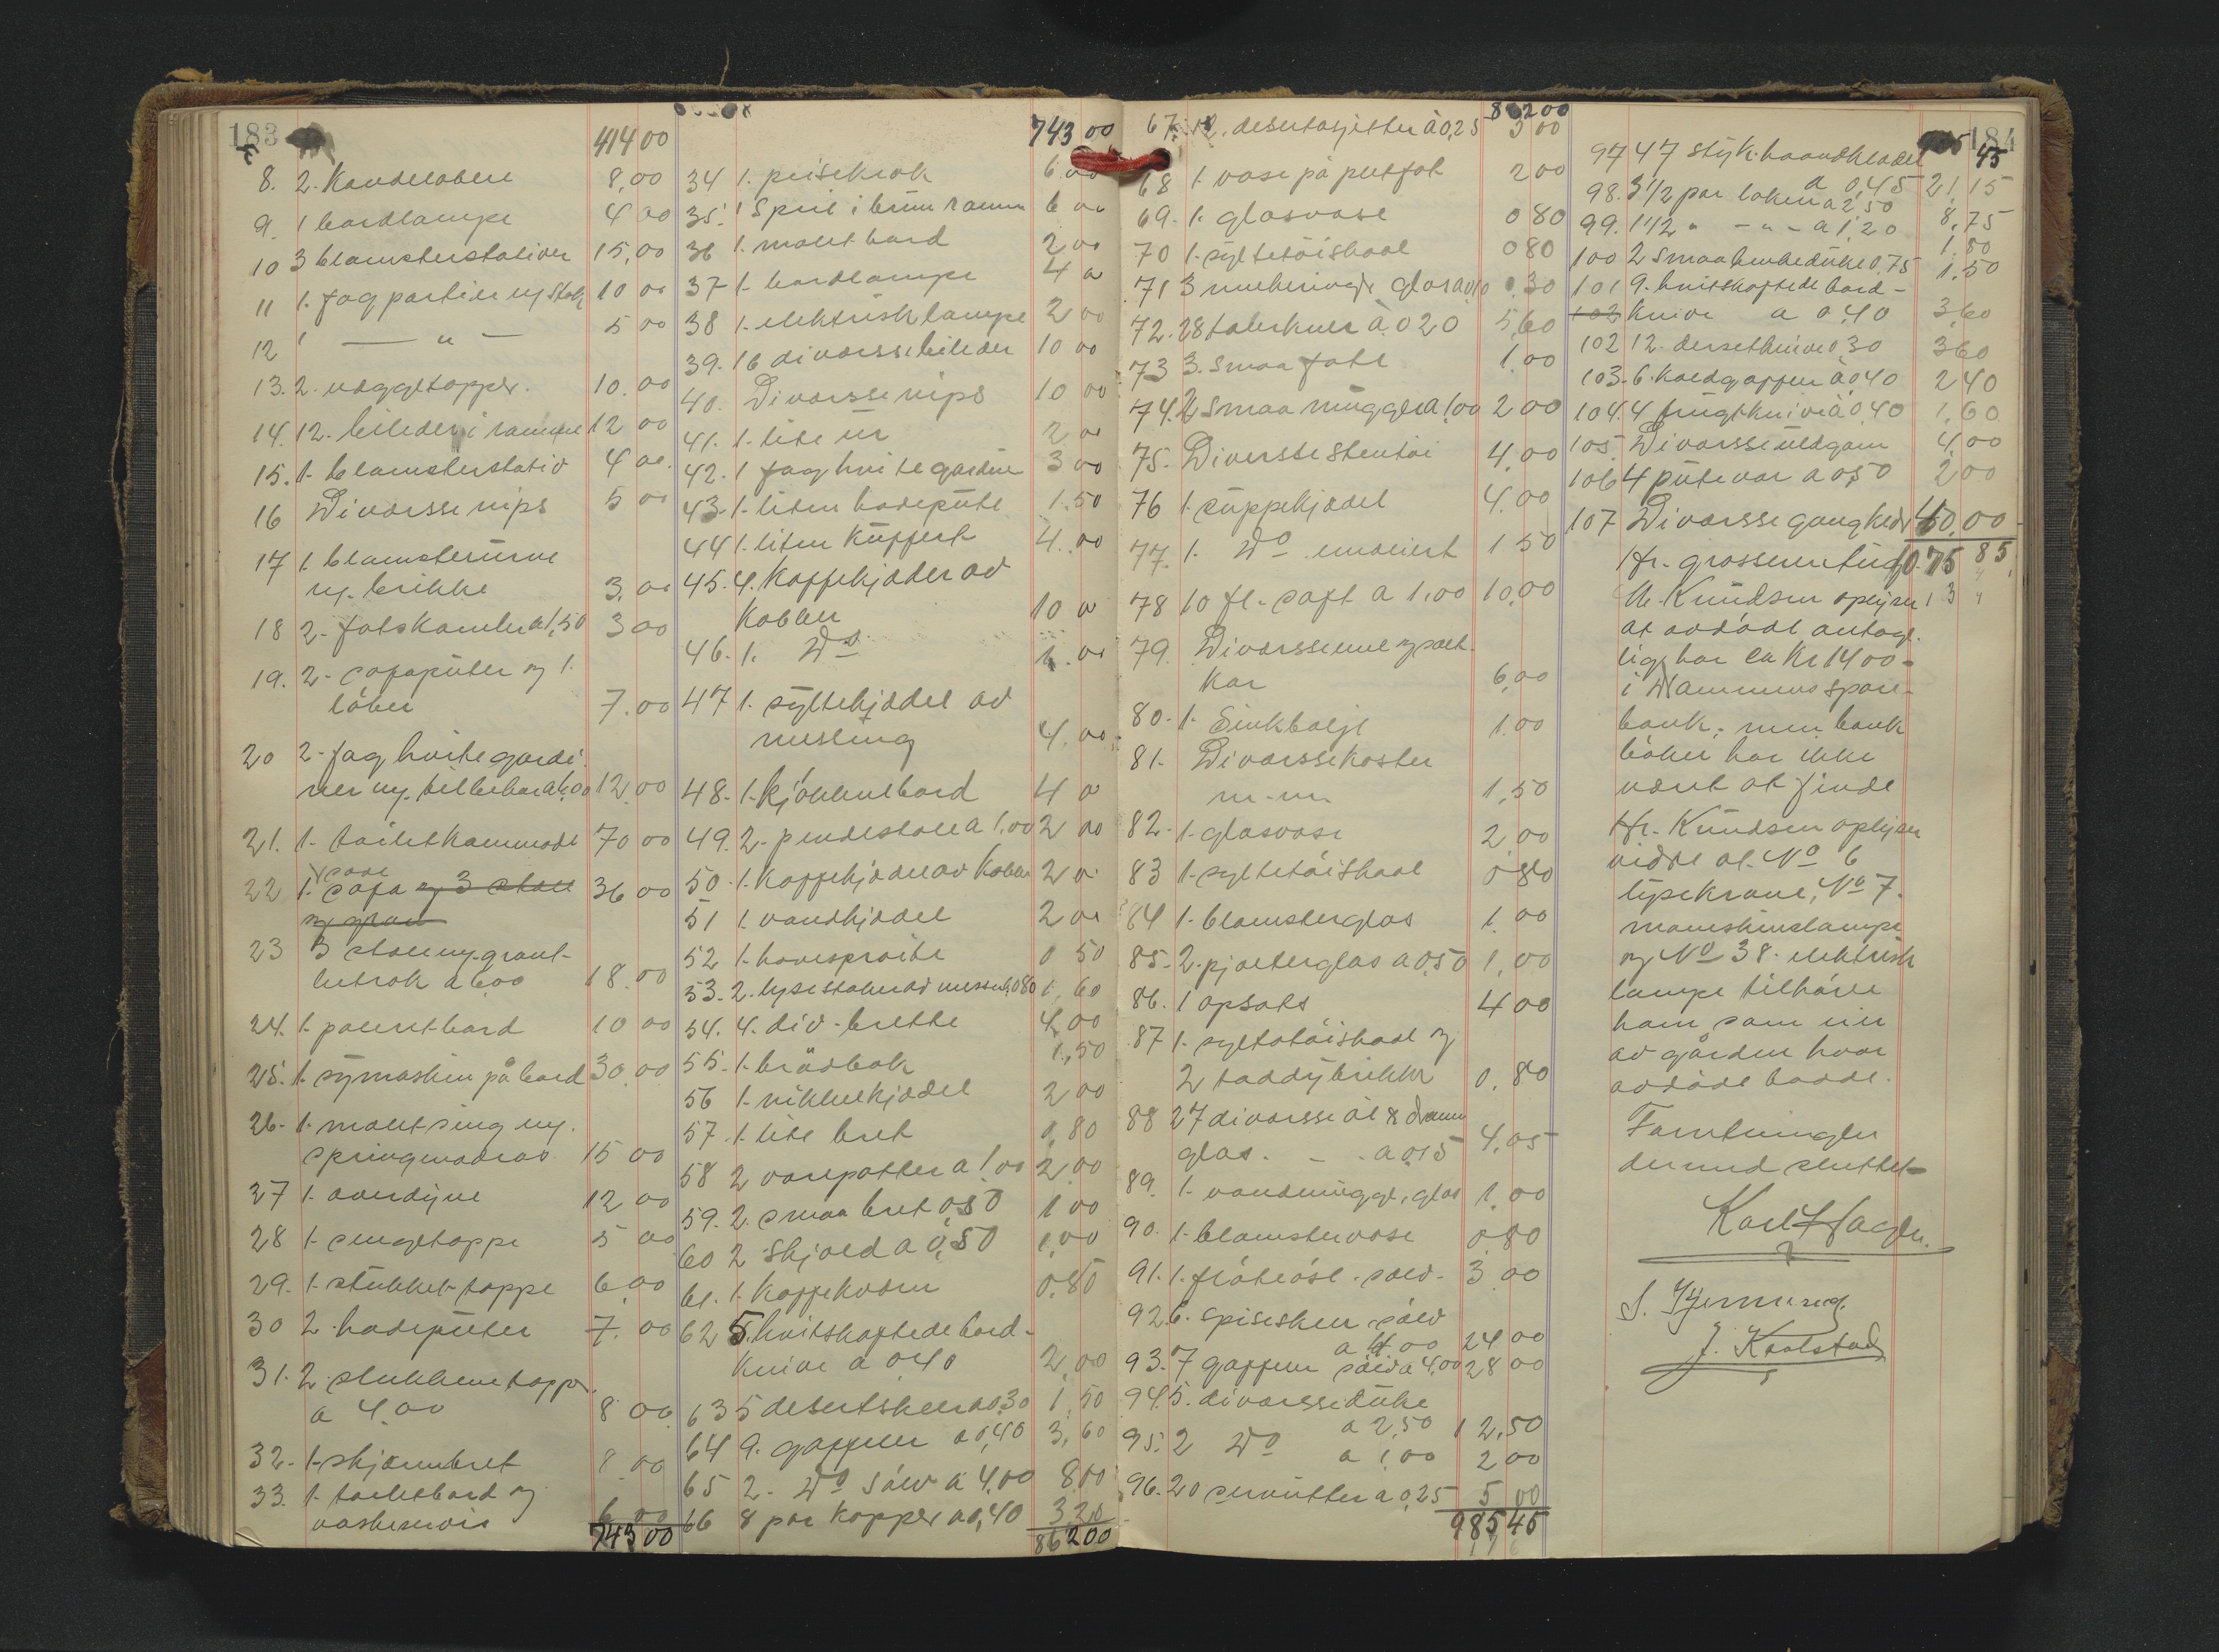 183
414 00
8. 2. Kandelabere 8,00
9. 1 bordlampe 4 00
10 3 blomsterstativer 15,00
11 1. fag portierer m/ stok 10 00
12 1 — " — 5 00
13. 2. væggetopper. 10.00
14. 12. billeder i ramme 12 00
15. 1. blomsterstativ 4 00.
16 Divorsse nips 5 00
17 1. blomsterurne
m/ brikke 3,00
18 2. fotskamler a 1,50 3 00
19. 2. sofaputer og 1.
löber 7.00
20 2. fag hvite gardi-
ner m/ tilbehør a 6,00 12.00
21. 1. toiletkommode 70 00
22 1. sofa og 3 stole 36 00
23 3 stoler m/ grønt-
betræk a 6,00 18.00
24. 1. polert bord 10 00
25. 1. symaskin på bord 30.00
26. 1. malet seng m/
springmadras 15 00
27 1. overdyne 12 00
28 1. sengeteppe 5 00
29. 1. stukket teppe 6,00
30 2. hodeputer 7.00
31. 2. stukkene tepper
a 4.00 8 00
32. 1. skjærebret 8.00
33. 1. toiletbord og
vaskeservis 6,00
743 00
743 00
34 1. peisekrok 6.00
35. 1 Speil i brun ramme 6 00
36 1. malet bord 2,00
37 1. bordlampe 4 00
38 1. elektrisk lampe 2 00
39. 16 divorsse billeder 10 00
40. Divorsse nips 10 00
41. 1. lite ur 2.00
42. 1 fag hvite gardiner 3 00
43. 1. liten hodepute 1.50
44 1. liten Kuffert 4.00
45. 4. Kaffekjedler av
Kobber 10 00
46. 1. Do 1.00
47 1. syltekjedel av
messing 4.00
48. 1. kjökkenbord 4 00
49. 2. pindestole a 1.00 2 00
50. 1. Kaffekjedel av Kobber 2 00
51 1. vandkjedel 2 00
52 1. havesprøite 0 50
53. 2. lysestaker av messing 0.80 1,60
54. 4. div. brette 4,00
55. 1. brödbak 1,50
56 1. nikkelkjedel 2 00
57. 1. lite bret 0,80
58 2 varepotter a 1.00 2.00
59. 2. smaa bret 0,50 1 00
60 2. Skjold a 0,50 1,00
61. 1. Kaffekvern 0.80
62 5. hvitskaftede bord-
knive a 0.40 2,00
63 5 desertskeer a 0,30 1.50
64 9. gaffeler a 0,40 3,60
65 2. Do sölv a 4,00 8.00
66 8 par Kopper a 0,40 3,20
862 00
862 00
67. 12. desertasjetter à 0,25 3 00
68 1. vase på putfot 2 00
69. 1. glasvase 0 80
70 1. syltetöiskaal 0 80
71 3 0.30
72. 28 talerkner à 0 20 5,60
73 3. smaa fate 1.00
74. 2 smaa mugger a 1,00 2 00
75. Diversse Stentöi 4,00
76 1. suppekjedel 4.00
77. 1. Do emaljert 1 50
78 10 fl. saft a 1.00 10.00
79. Divorsse mel og salt-
kar 6,00
80. 1. Sinkbalje 1.00
81. Divorsse koster
m.m. 1,50
82. 1. glasvase 2,00
83 1. syltetöiskaal 0 80
84 1. blomsterglas 1.00
85. 2. pjolterglas a 0,50 1,00
86. 1 opsats 4 00
87 1. syltetöiskaal og
2 toddybrikker 0.80
88 27 divorsse öl & dram
glas. — . a 0,15 4,05
89. 1. vandmugge, glas 1,00
90. 1. blomstervase 0,80
91. 1. flöteöse. sölv. 3 00
92. 6. spiseskeer sölv
a 4 00 24 00
93. 7 gaffeler sölv a 4,00 28 00
94 5. divorsse duke
a 2,50 12,50
95. 2 Do a 1,00 2 00
96. 20 servietter a 0,25 5 00
985 45
184
985 45
97 47 styk. haandklæder
a 0,45 21,15
98. 3 1/2 par laken a 2,50 8,75
99. 1 1/2 " — " — a 1,20 1.80
100 2 smaa 0,75 1,50
101 9. hvitskaftede bord-
102 knive a 0,40 3,60
102 12. desertknive 0,30 3 60
103. 6. Koldgafler a 0,40 2 40
104. 4 frugtknive à 0,40 1,60
105. Divorsse uldgarn 4,00
106 4 putevar a 0,50 2,00
107 Divorsse gangklær 40,00
1075 85
Hr. grosserer
M. Knudsen oplyser
at avdöde antage-
lig har ca Kr 1400-
i Drammens Spare-
bank; men bank
böker har ikke
været at finde
Hr. Knudsen oplyser
vidre at. No 6
lysekrone, No 7.
maaneskinslampe
og No 38. elektrisk
lampe tilhörer
ham som eier
av gården hvor
avdöde bodde.
Forretningen
dermed sluttet-
J. Kolstad